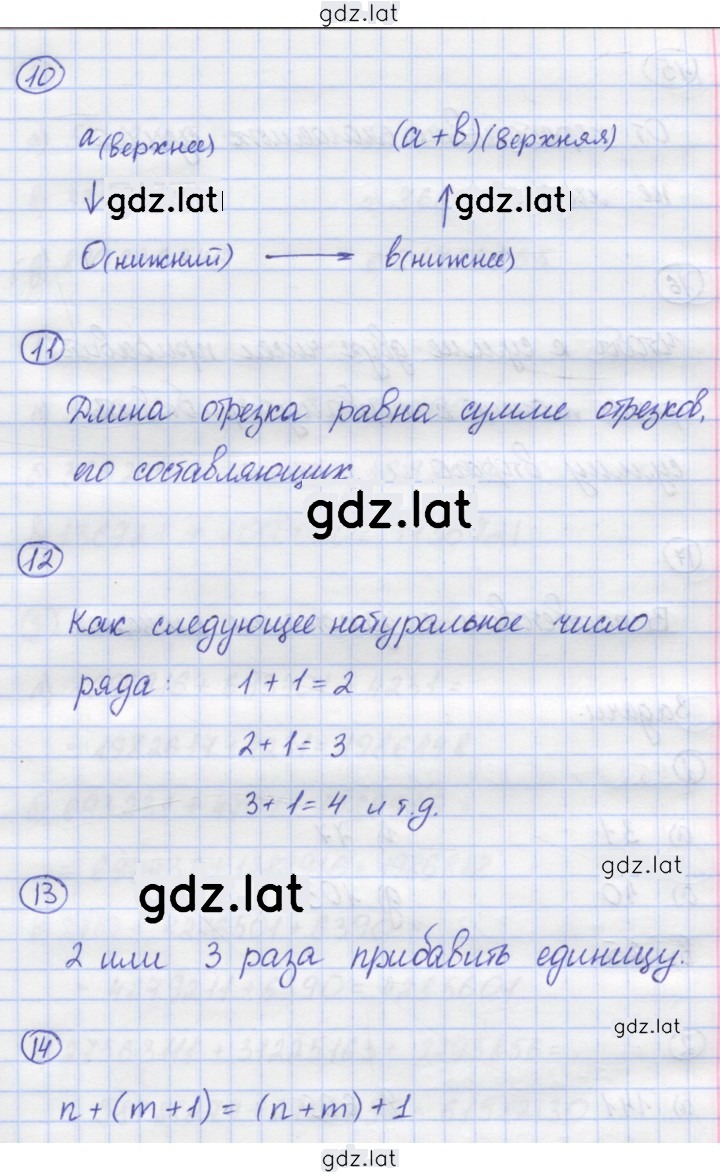 gdz.lat
10
а (верхнее) (а+в) (верхняя)
↓ gdz.lat ↑ gdz.lat
0 (нижний) → в (нижнее)
11
Длина отрезка равна сумме отрезков,
его составляющих
gdz.lat
12
Как следующее натуральное число
ряда: 1+1=2
2+1=3
3+1=4 и т.д.
gdz.lat
13 gdz.lat
2 или 3 раза прибавить единицу.
gdz.lat
14
n+(m+1)=(n+m)+1
gdz.lat